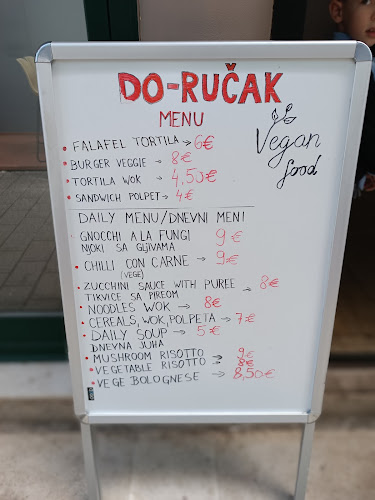 DO-RUČAK
MENU
Vegan
food
• FALAFEL TORTILA → 6€
• BURGER VEGGIE → 8€
• TORTILA WOK → 4,50€
• SANDWICH POLPET → 4€
DAILY MENU/DNEVNI MENI
GNOCCHI A LA FUNGI 9€
NJOKI SA GLJIVAMA
• CHILLI CON CARNE → 9€
(VEGE)
• ZUCCHINI SAUCE WITH PUREE → 8€
TIKVICE SA PIREOM
• NOODLES WOK → 8€
• CEREALS, WOK, POLPETA → 7€
• DAILY SOUP → 5€
DNEVNA JUHA
• MUSHROOM RISOTTO → 9€
• VEGETABLE RISOTTO → 8€
• VEGE BOLOGNESE → 8,50€